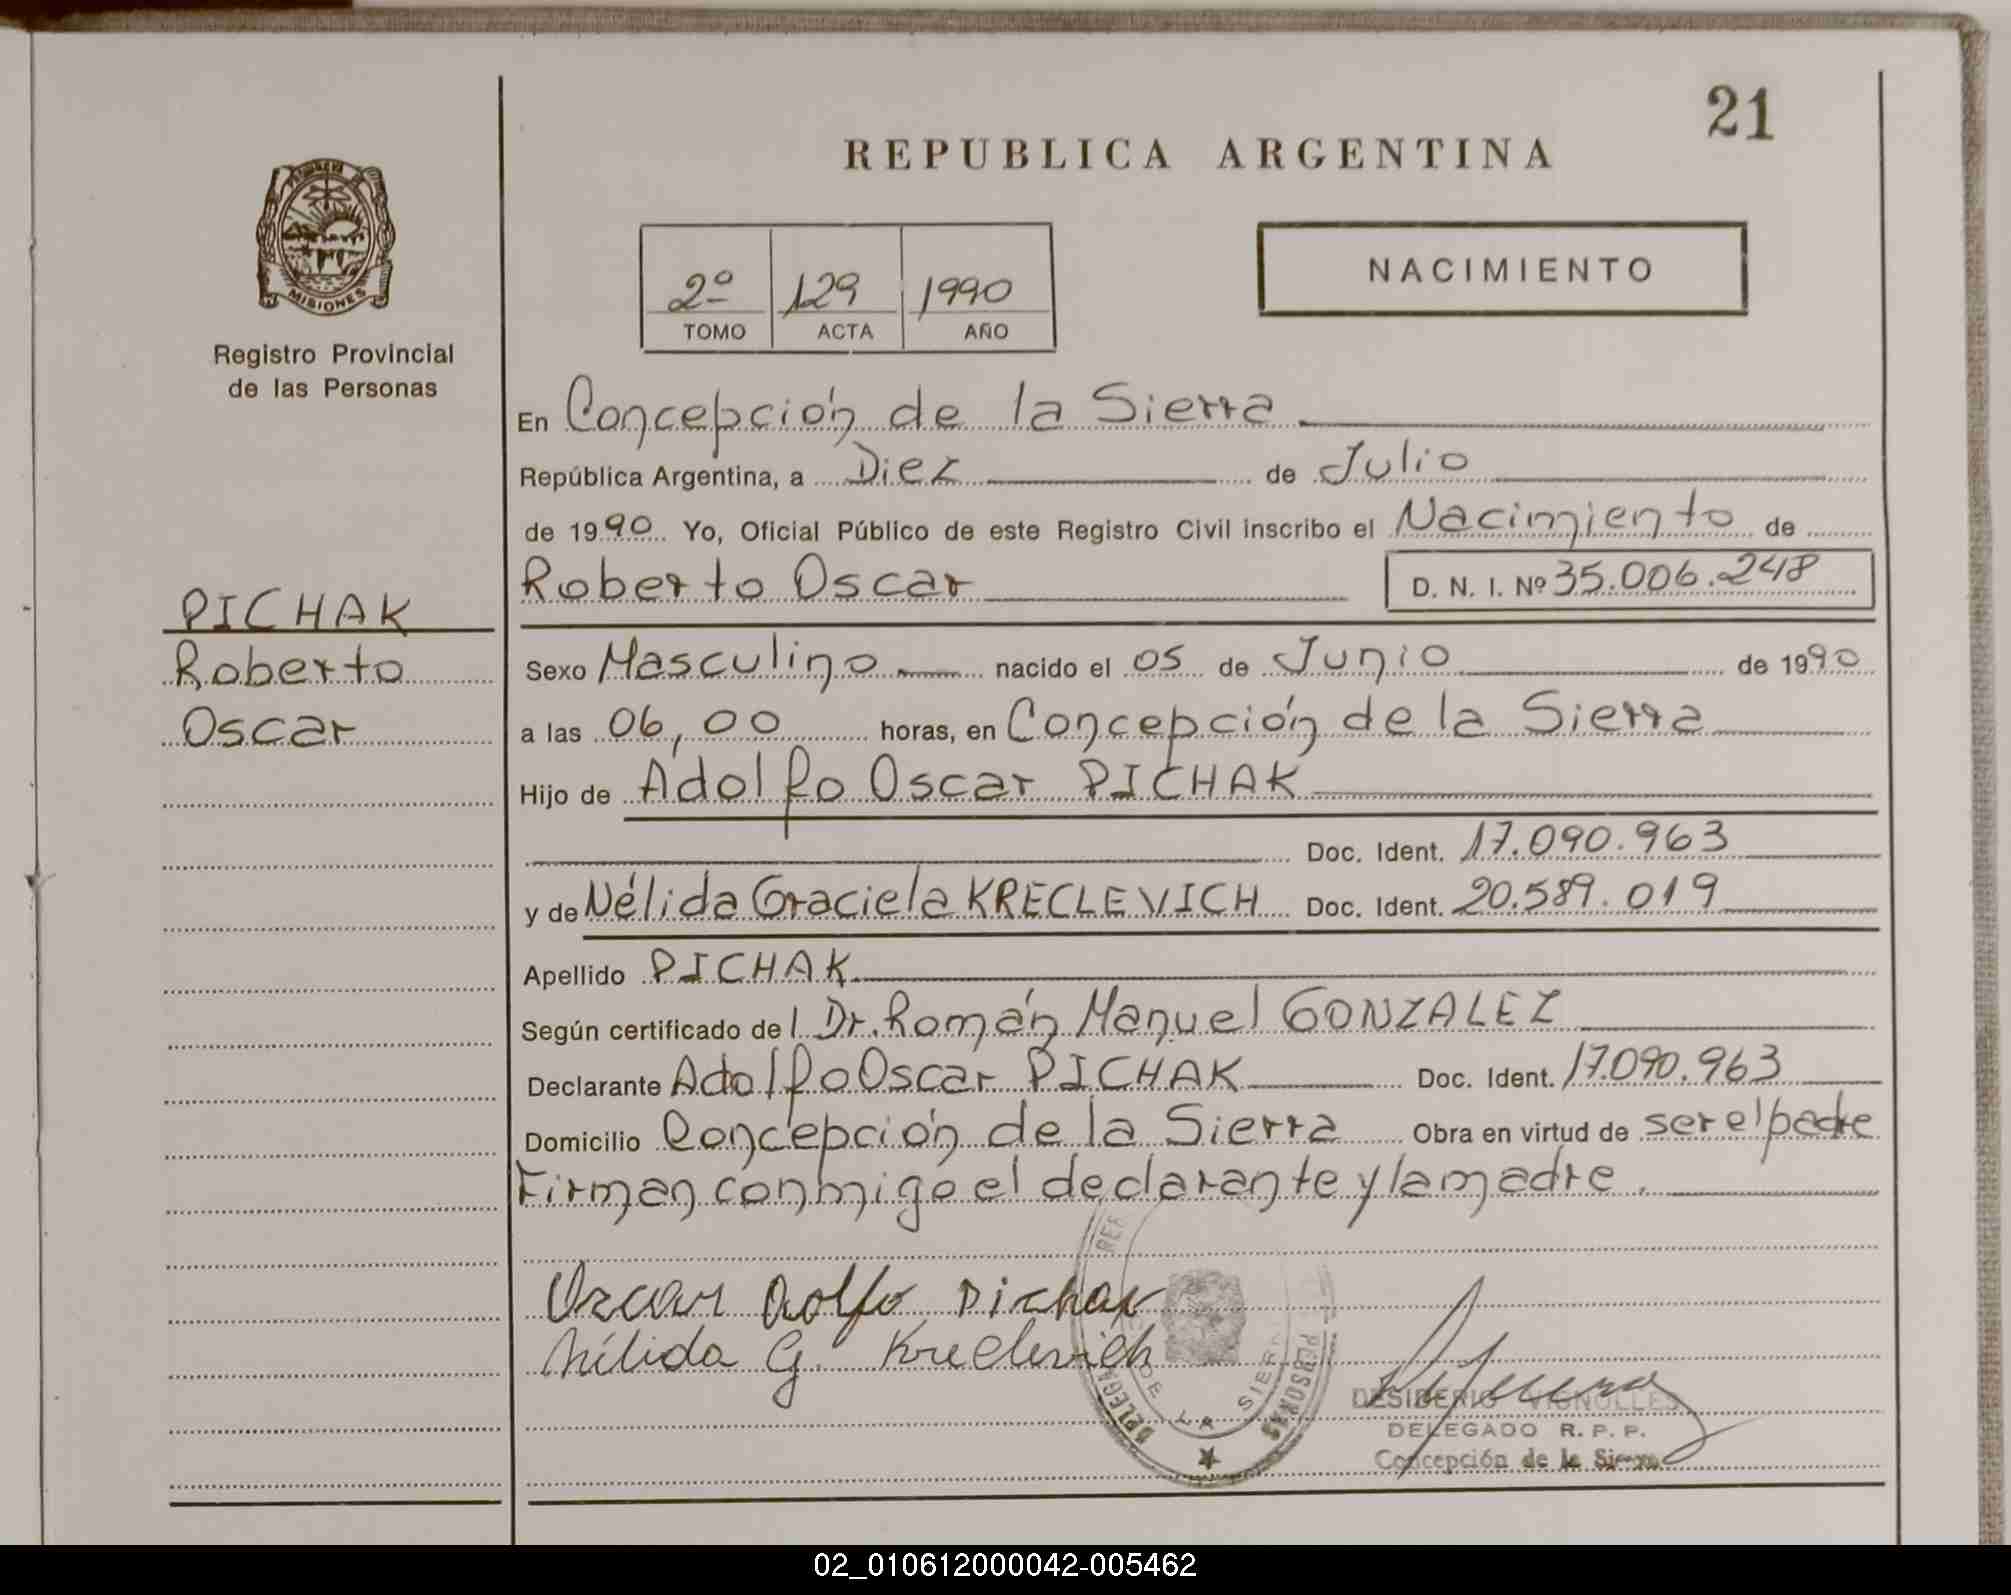 21
REPUBLICA ARGENTINA
MISIONES
Registro Provincial
de las Personas
2º 129 1990
TOMO ACTA AÑO
NACIMIENTO
En Concepción de la Sierra
República Argentina, a Diez de Julio
de 1990 Yo, Oficial Público de este Registro Civil inscribo el Nacimiento de
Roberto Oscar D. N. I. Nº 35.006.248
PICHAK
Roberto
Oscar
Sexo Masculino nacido el 05 de Junio de 1990
a las 06,00 horas, en Concepción de la Sierra
Hijo de Adolfo Oscar PICHAK
Doc. Ident. 17.090.963
y de Nélida Graciela KRECLEVICH Doc. Ident. 20.589.019
Apellido PICHAK
Según certificado del Dr. Román Manuel GONZALEZ
Declarante Adolfo Oscar PICHAK Doc. Ident. 17.090.963
Domicilio Concepción de la Sierra Obra en virtud de ser el padre
Firman conmigo el declarante y la madre.
Oscar Adolfo Pichak
Nélida G. Kreclevich
DE LA SIERRA
PERSONAS
DESIDERIO VIGNOLLES
DELEGADO R. P. P.
Concepción de la Sierra
02_010612000042-005462